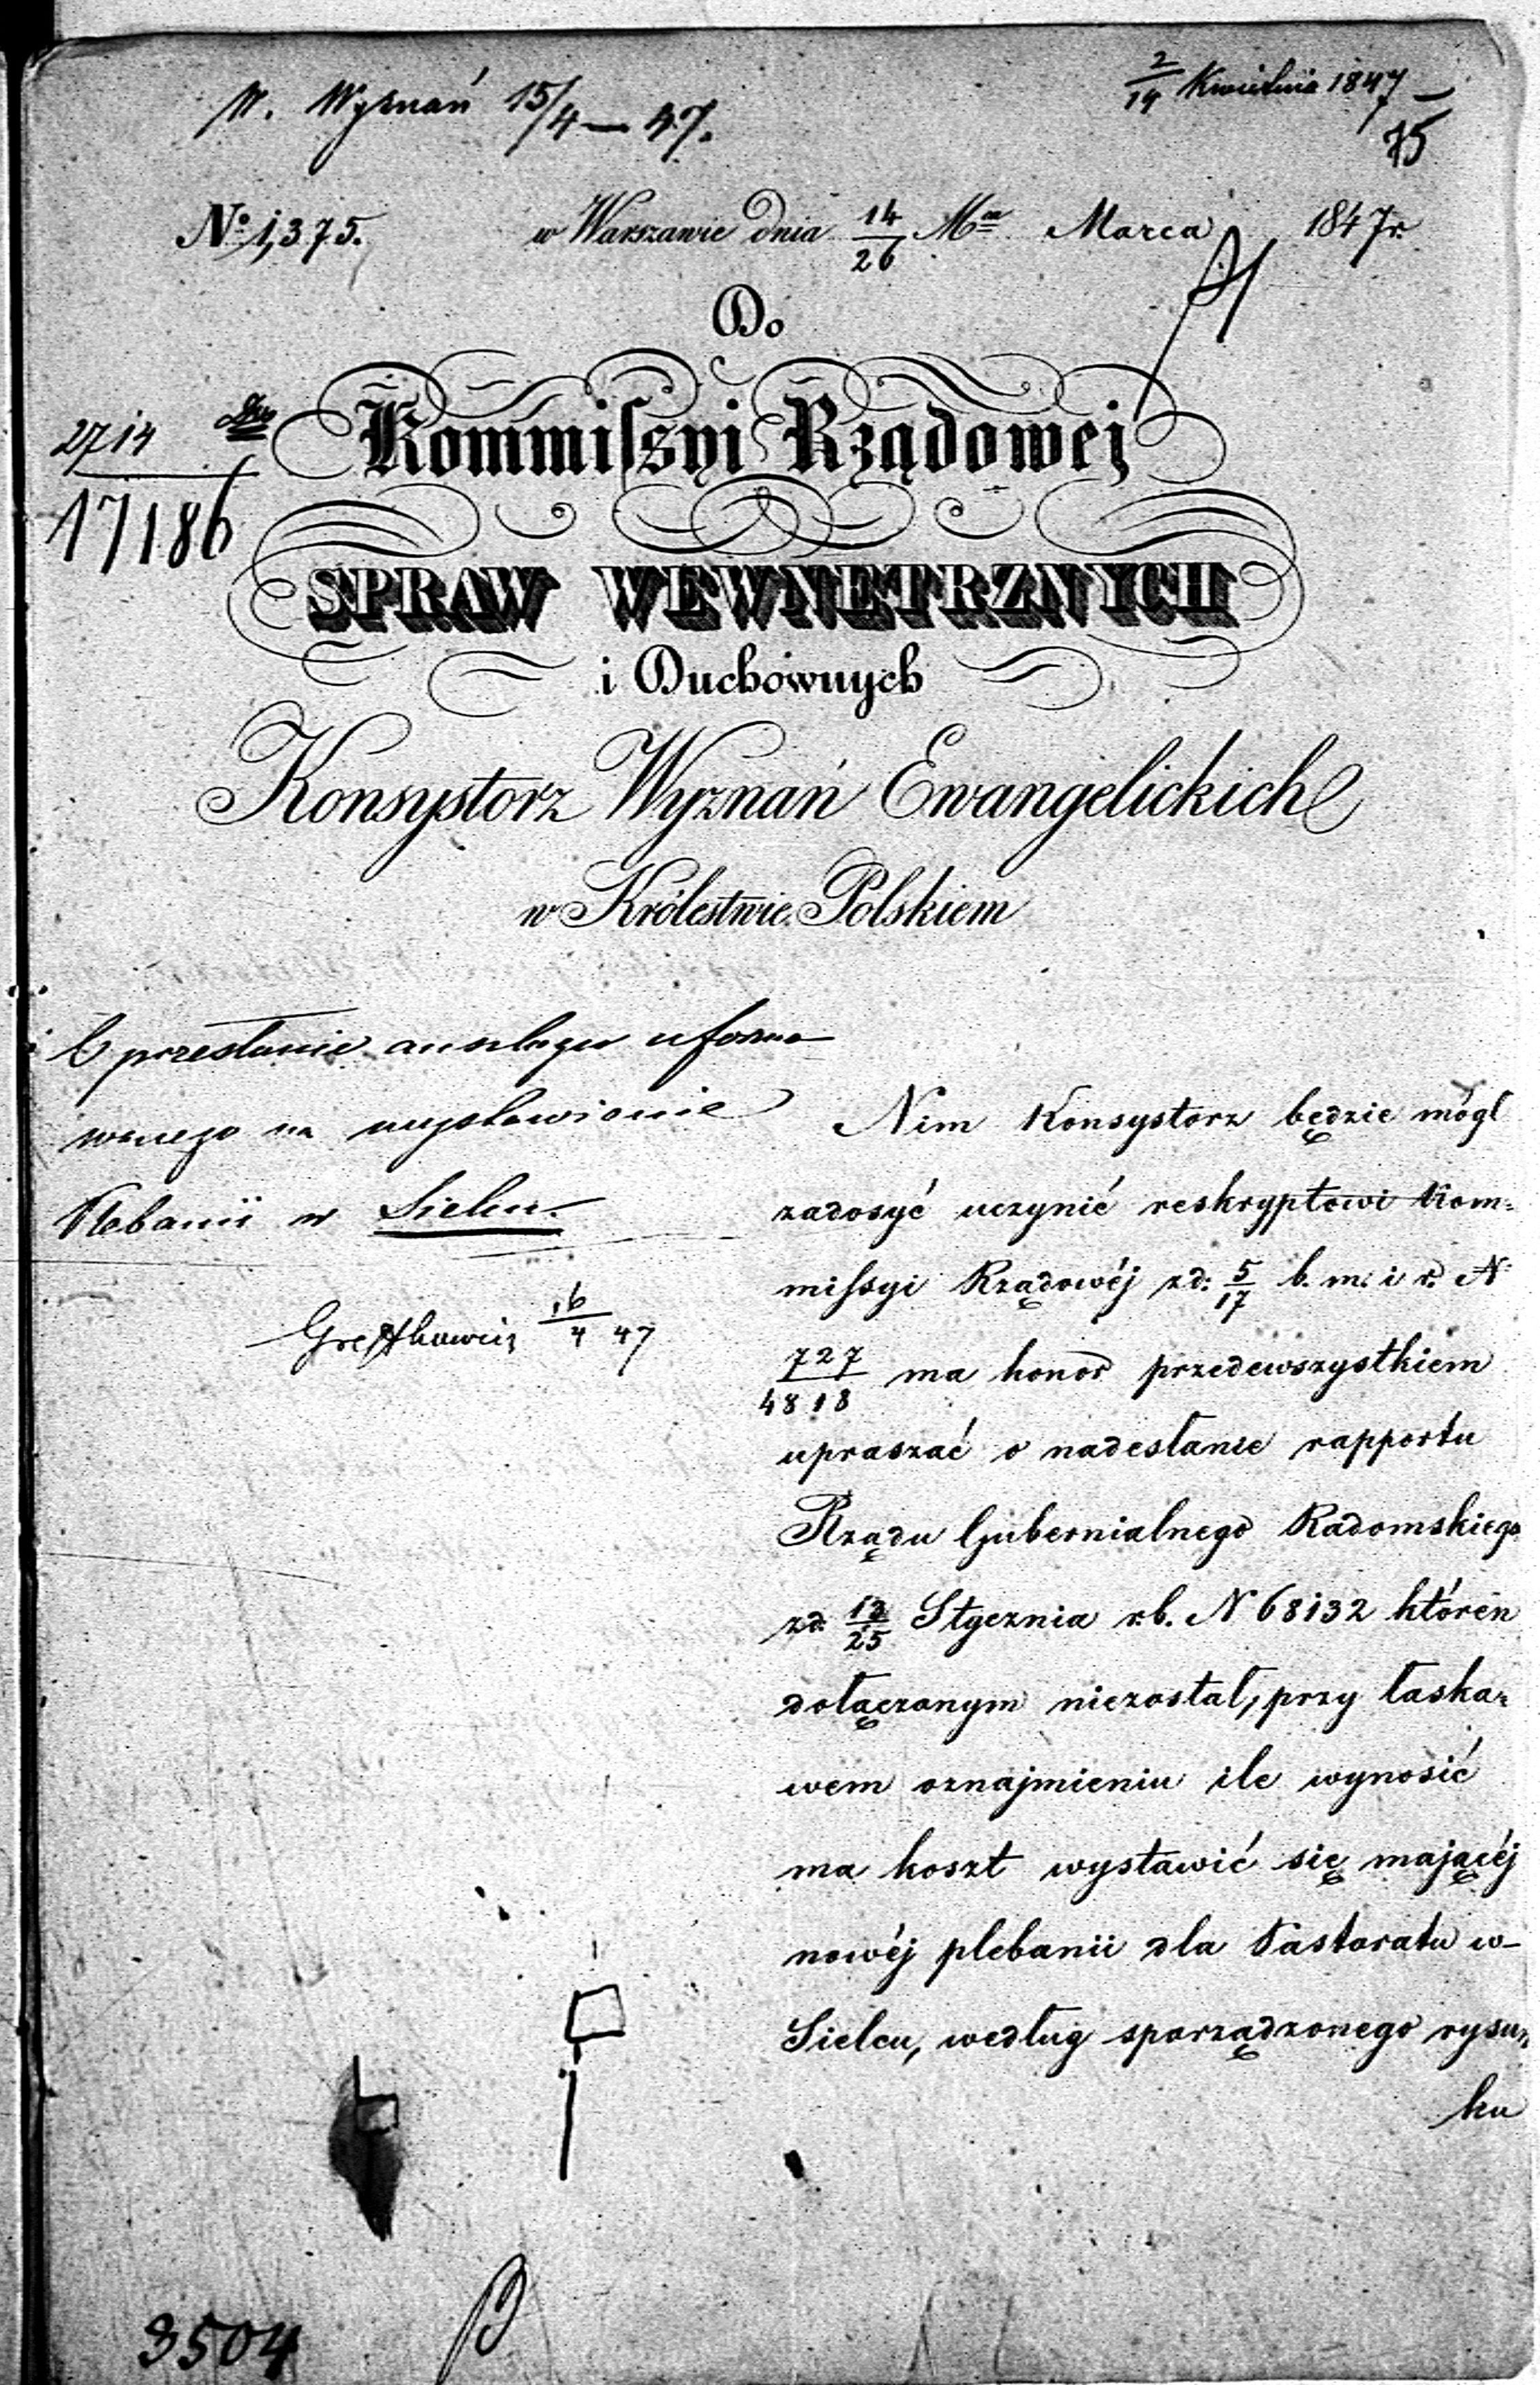 W. Wyznań 15/4 – 47.
2/14 Kwietnia 1847
75
No 1,375. w Warszawie dnia 14/26 Mca Marca 1847 r.
Do
Kommissyi Rządowej
2714
17186
SPRAW WEWNĘTRZNYCH
i Duchównych
Konsystorz Wyznań Ewangelickich
w Królestwie Polskiem
O przesłanie anszlagu uformo
wanego na wystawienie
Plebanii w Sielcu.
16/4 47
Nim Konsystorz będzie mógł
zadosyć uczynić reskryptowi Kom=
missyi Rządowéj zd: 5/17 b. m. i r. N
727/4818 ma honor przedewszystkiem
upraszać o nadesłanie rapportu
Rządu Gubernialnego Radomskiego
zd. 13/25 Stycznia r.b. N 68132 któren
dołączonym niezostał, przy łaska=
wem oznajmieniu ile wynosić
ma koszt wystawić się mającéj
nowéj plebanii dla Pastoratu w
Sielcu, według sporządzonego rysun=
ku
3504